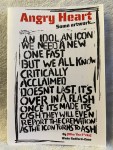 Angry Heart
Some artwork...
AN IDOL AN ICON
WE NEED A NEW
ONE FAST
BUT WE ALL KNOW
CRITICALLY
ACCLAIMED
DOESNT LAST. ITS
OVER IN A FLASH
ONCE ITS MADE ITS
CASH THEY WILL EVEN
REPORT THE CREMATION
AS THE ICON TURNS TO ASH
By